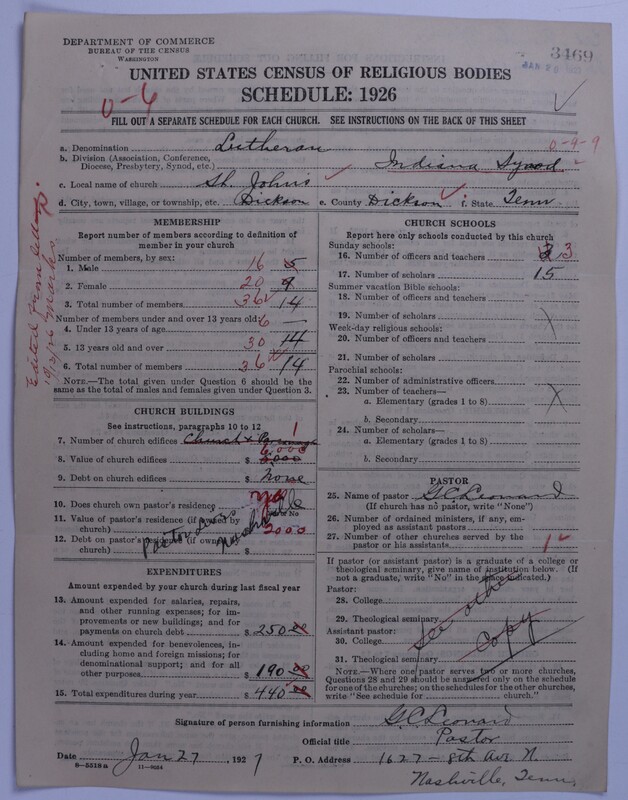 DEPARTMENT OF COMMERCE
BUREAU OF THE CENSUS
WASHINGTON
3469
JAN 28
UNITED STATES CENSUS OF RELIGIOUS BODIES
SCHEDULE: 1926
0-6
FILL OUT A SEPARATE SCHEDULE FOR EACH CHURCH. SEE INSTRUCTIONS ON THE BACK OF THIS SHEET
a. Denomination Lutheran 0-9-9
b. Division (Association, Conference, Diocese, Presbytery, Synod, etc.) Indiana Synod
c. Local name of church St. John's
d. City, town, village, or township, etc. Dickson e. County Dickson f. State Tenn
MEMBERSHIP
Report number of members according to definition of member in your church
Number of members, by sex:
1. Male 16 5
2. Female 20 9
3. Total number of members 36 14
Number of members under and over 13 years old:
4. Under 13 years of age 6 —
5. 13 years old and over 30 14
6. Total number of members 36 14
NOTE.—The total given under Question 6 should be the same as the total of males and females given under Question 3.
CHURCH BUILDINGS
See instructions, paragraphs 10 to 12
7. Number of church edifices Church & Parsonage 1
8. Value of church edifices $ 6,000
9. Debt on church edifices $ None
10. Does church own pastor's residence yes
Yes or No
11. Value of pastor's residence (if owned by church) $ 2000
12. Debt on pastor's residence (if owned by church) $
Pastor lives Nashville
EXPENDITURES
Amount expended by your church during last fiscal year
13. Amount expended for salaries, repairs, and other running expenses; for improvements or new buildings; and for payments on church debt $ 250.00
14. Amount expended for benevolences, including home and foreign missions; for denominational support; and for all other purposes $ 190.00
15. Total expenditures during year $ 440.00
CHURCH SCHOOLS
Report here only schools conducted by this church
Sunday schools:
16. Number of officers and teachers 3
17. Number of scholars 15
Summer vacation Bible schools:
18. Number of officers and teachers
19. Number of scholars
Week-day religious schools:
20. Number of officers and teachers
21. Number of scholars
Parochial schools:
22. Number of administrative officers
23. Number of teachers—
a. Elementary (grades 1 to 8)
b. Secondary
24. Number of scholars—
a. Elementary (grades 1 to 8)
b. Secondary
PASTOR
25. Name of pastor G C Leonard
(If church has no pastor, write "None")
26. Number of ordained ministers, if any, employed as assistant pastors
27. Number of other churches served by the pastor or his assistants 1
If pastor (or assistant pastor) is a graduate of a college or theological seminary, give name of institution below. (If not a graduate, write "No" in the space indicated.)
Pastor:
28. College
29. Theological seminary
Assistant pastor:
30. College
31. Theological seminary
See other Copy
NOTE.—Where one pastor serves two or more churches, Questions 28 and 29 should be answered only on the schedule for one of the churches; on the schedules for the other churches, write "See schedule for church."
Signature of person furnishing information G C Leonard
Official title Pastor
Date Jan 27, 1927 P. O. Address 1627 - 8th Ave N.
8-5318a 11-9034
Nashville, Tenn.